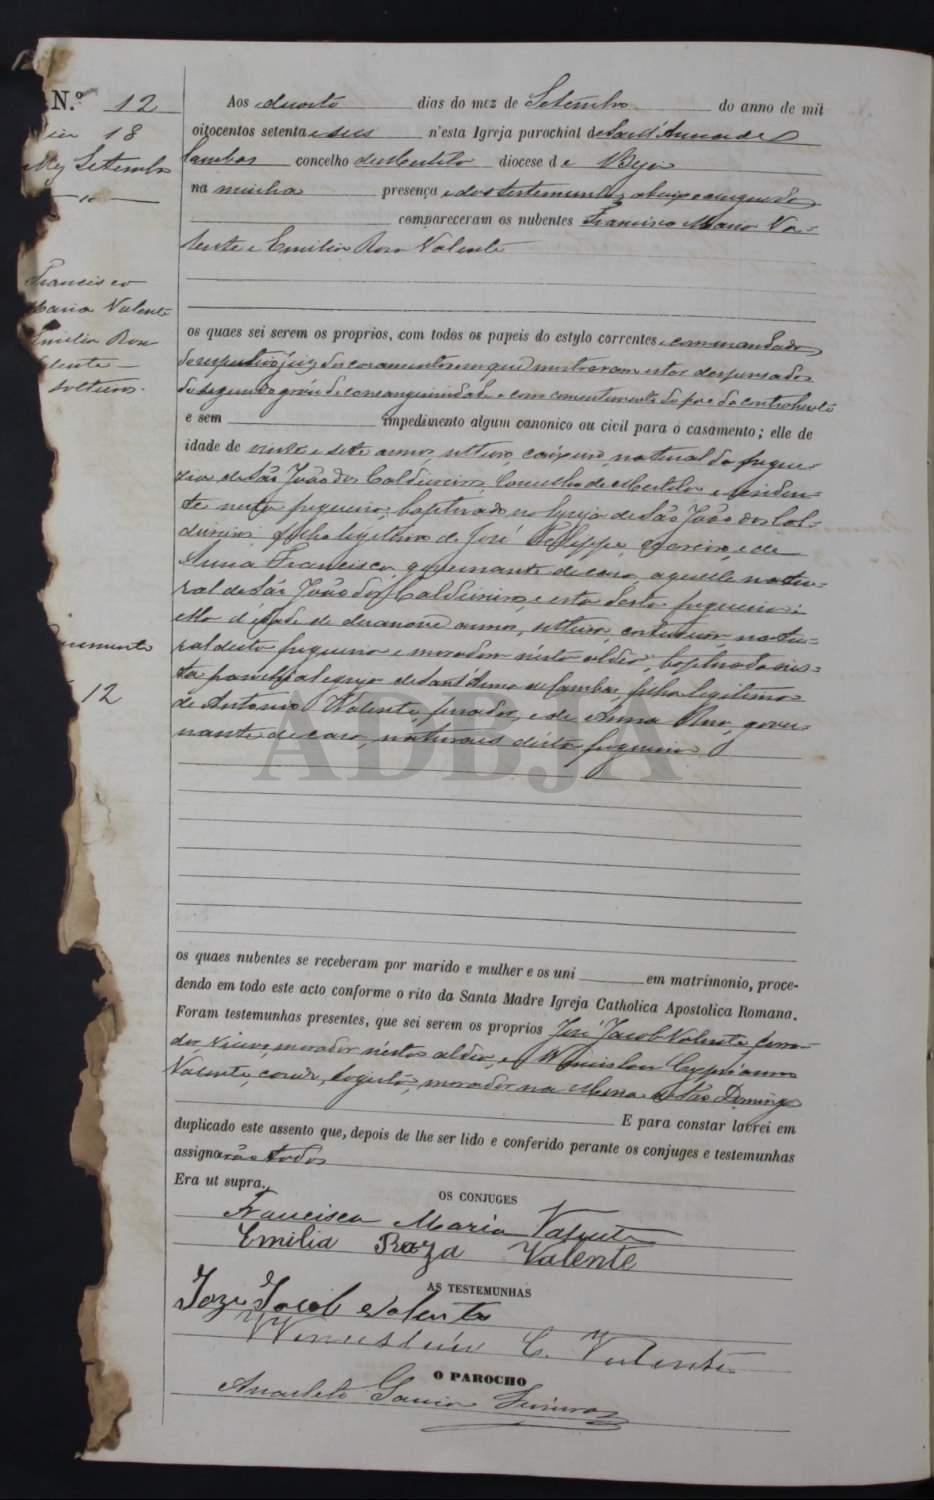 N.º 12
18
Setembro
Francisco
Maria Valente
Emilia Roza
lente
solteiros.
12
Aos quarto dias do mez de Setembro do anno de mil
oitocentos setenta e seis n'esta Igreja parochial de Sant'Anna de
Cambas concelho de Mertola diocese de Beja
na minha presença e das testemunhas abaixo
compareceram os nubentes Francisco Maria Va-
lente e Emilia Roza Valente
os quaes sei serem os proprios, com todos os papeis do estylo correntes e com mandado
do respectivo juiz dos casamentos em que mostraram estar despensados
do segundo gráo de consanguinidade e com consentimento do pae da contrahente
e sem impedimento algum canonico ou civil para o casamento; elle de
idade de vinte e sete annos, solteiro, caixeiro, natural da fregue-
zia de São João dos Caldeireiros, Concelho de Mertola e residen-
te nesta freguezia, baptizado na Igreja de São João dos Cal-
deireiros, filho legitimo de José Felippe, e de
Anna Francisca, governante de casa, aquelle natu-
ral de São João dos Caldeireiros, e esta desta freguezia:
ella d'idade de desanove annos, solteira, costureira, natu-
ral desta freguezia e moradora nésta aldeia, baptizada nes-
ta parochial egreja de Sant'Anna de Cambas, filha legitima
de Antonio Valente, ferrador, e de Anna Roza, gover-
nante de casa, naturaes désta freguezia
ADBJA
os quaes nubentes se receberam por marido e mulher e os uni em matrimonio, proce-
dendo em todo este acto conforme o rito da Santa Madre Igreja Catholica Apostolica Romana.
Foram testemunhas presentes, que sei serem os proprios José Jacob Valente ferra-
dor, viuvo, morador nésta aldeia, e Wenceslau Cypriano
Valente, morador na Mina de São Domingos
E para constar lavrei em
duplicado este assento que, depois de lhe ser lido e conferido perante os conjuges e testemunhas
assignarão todos
Era ut supra.
OS CONJUGES
Francisco Maria Valente
Emilia Roza Valente
AS TESTEMUNHAS
Joze Jacob Valente
Wenceslau C. Valente
O PAROCHO
Anacleto Garcia